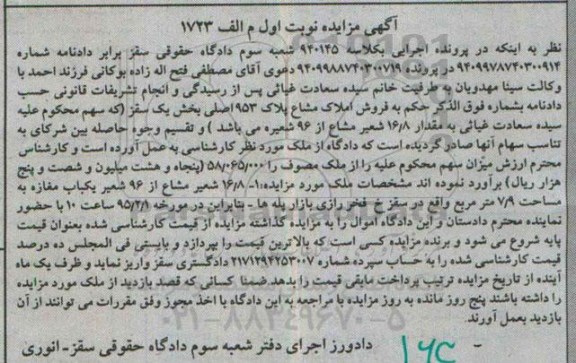 آگهی مزایده نوبت اول م الف ۱۷۲۳
نظر به اینکه در پرونده اجرایی بکلاسه ۹۴۰۱۴۵ شعبه سوم دادگاه حقوقی سقز برابر دادنامه شماره
۹۴۰۹۹۷۸۷۴۰۳۰۰۹۱۴ در پرونده ۹۴۰۹۹۸۸۷۴۰۳۰۰۷۱۹ دعوی آقای مصطفی فتح اله زاده بوکانی فرزند احمد با
وکالت سینا مهدویان به طرفیت خانم سیده سعادت غیاثی پس از رسیدگی و انجام تشریفات قانونی حسب
دادنامه بشماره فوق الذکر حکم به فروش املاک مشاع پلاک ۹۵۳ اصلی بخش یک سقز (که سهم محکوم علیه
سیده سعادت غیاثی به مقدار ۱۶/۸ شعیر مشاع از ۹۶ شعیره می باشد ) و تقسیم وجوه حاصله بین شرکای به
تناسب سهام آنها صادر گردیده است که دادگاه از ملک مورد نظر کارشناسی به عمل آورده است و کارشناس
محترم ارزش میزان سهم محکوم علیه را از ملک مصوف را ۵۸/۰۶۵/۰۰۰ (پنجاه و هشت میلیون و شصت و پنج
هزار ریال) برآورد نموده اند مشخصات ملک مورد مزایده:۱- ۱۶/۸ شعیر مشاع از ۹۶ شعیر یکباب مغازه به
مساحت ۷/۹ متر مربع واقع در سقز خ فخر رازی بازار پله ها - بنابراین در مورخه ۹۵/۲/۱ ساعت ۱۰ با حضور
نماینده محترم دادستان و این دادگاه اموال را به مزایده گذاشته مزایده از قیمت کارشناسی شده بعنوان قیمت
پایه شروع می شود و برنده مزایده کسی است که بالاترین قیمت را بپردازد و بایستی فی المجلس ده درصد
قیمت کارشناسی شده را به حساب سپرده شماره ۲۱۷۱۲۹۴۲۵۳۰۰۷ دادگستری سقز واریز نماید و ظرف یک ماه
آینده از تاریخ مزایده ترتیب پرداخت مابقی قیمت را بدهد ضمنا کسانی که قصد بازدید از ملک مورد مزایده
را داشته باشند پنج روز مانده به روز مزایده با مراجعه به این دادگاه با اخذ مجوز وفق مقررات می توانند از آن
بازدید بعمل آورند.
دادورز اجرای دفتر شعبه سوم دادگاه حقوقی سقز- انوری
۰۲۱-۸۸۳۴۹۶۷۰-۵